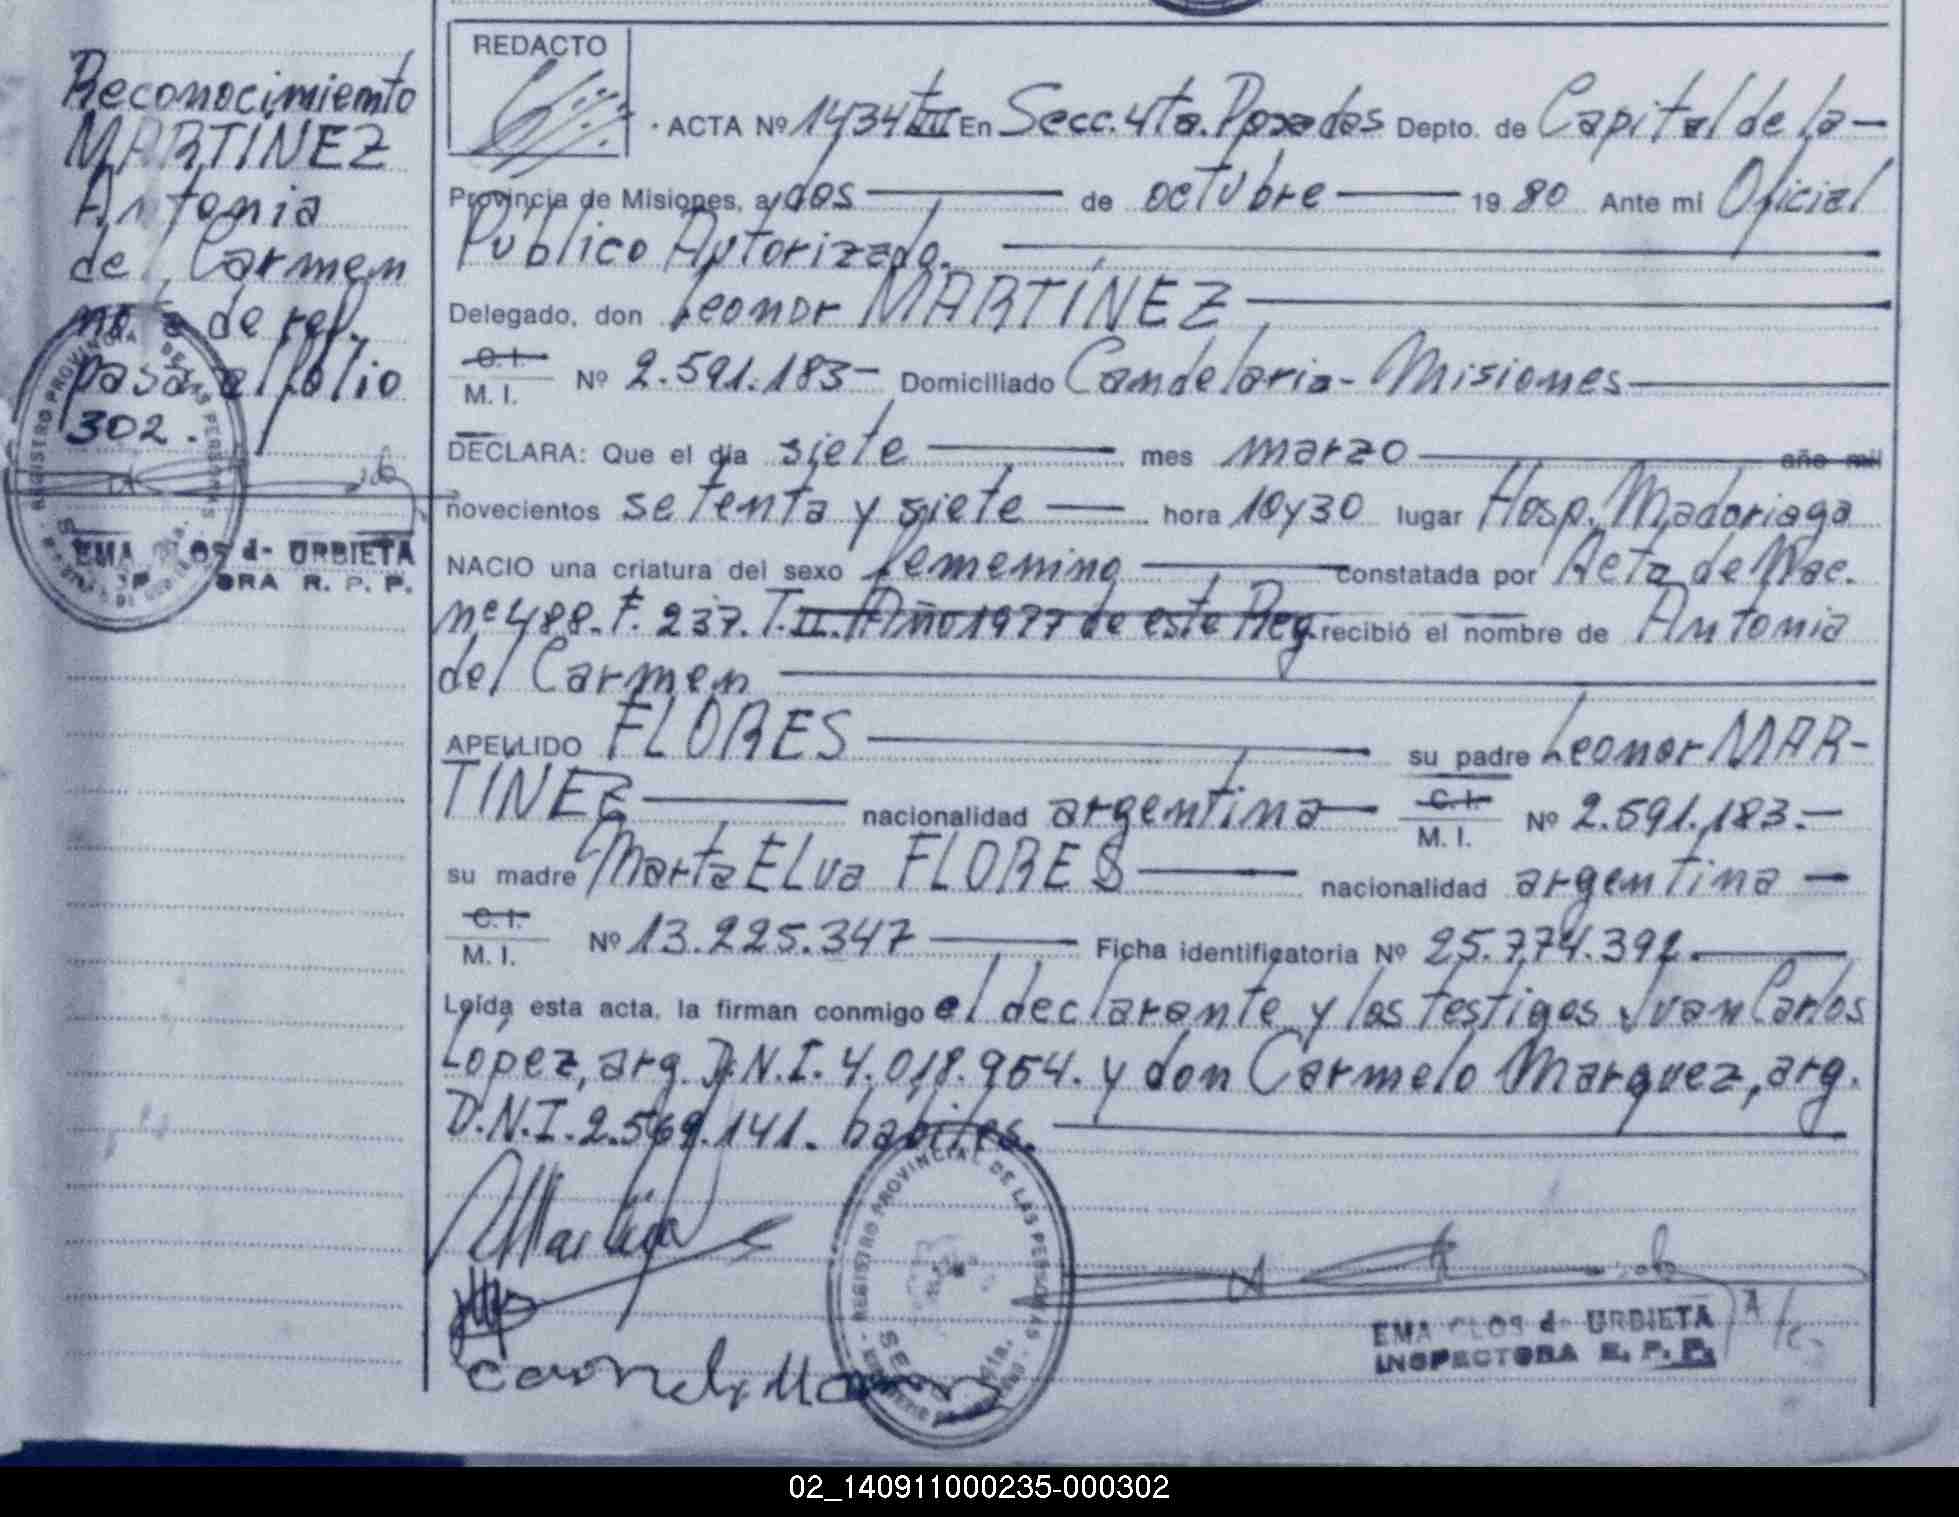 Reconocimiento
MARTÍNEZ
Antonia
del Carmen
de ref.
pasa al folio
302.
EMA CLOS d- URBIETA
R. P. P.
REDACTO
ACTA Nº 1434 TIII En Secc. 4ta. Posadas Depto. de Capital de la-
Provincia de Misiones, a dos de octubre 1980 Ante mi Oficial
Publico Autorizado.
Delegado, don Leonor MARTÍNEZ
C. I.
M. I. Nº 2.591.183- Domiciliado Candelaria- Misiones
DECLARA: Que el día siete mes marzo año mil
novecientos setenta y siete hora 10y30 lugar Hosp. Madariaga
NACIO una criatura del sexo femenino constatada por Acta de Nac.
nº 488. F. 237. T.II. Año 1977 de este Reg. recibió el nombre de Antonia
del Carmen
APELLIDO FLORES su padre Leonor MAR-
TÍNEZ nacionalidad argentina C. I.
M. I. Nº 2.591.183.-
su madre Marta ELva FLORES nacionalidad argentina -
C. I.
M. I. Nº 13.225.347 Ficha identificatoria Nº 25.774.392.
Leída esta acta, la firman conmigo el declarante y los testigos Juan Carlos
Lopez, arg. D.N.I. 4.018.954. y don Carmelo Marquez, arg.
D.N.I. 2.569.141. habiles.
REGISTRO PROVINCIAL DE LAS PERSONAS
EMA CLOS d- URBIETA
INSPECTORA R. P. P.
02_140911000235-000302